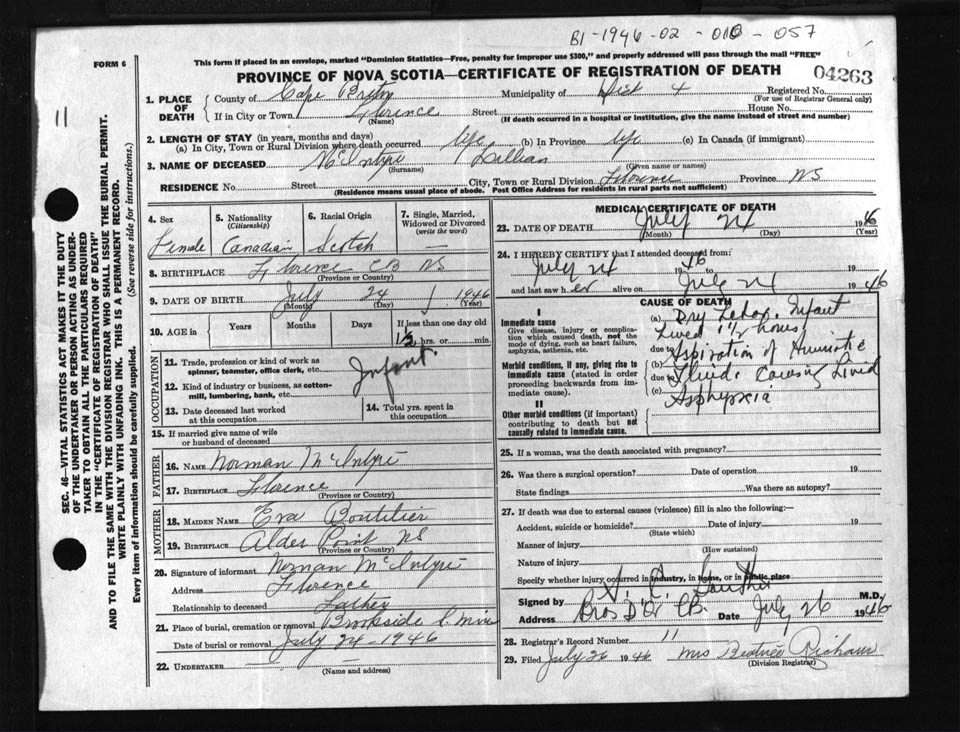 B1-1946-02-010-057
FORM 6
This form if placed in an envelope, marked "Dominion Statistics—Free, penalty for improper use $300," and properly addressed will pass through the mail "FREE"
PROVINCE OF NOVA SCOTIA—CERTIFICATE OF REGISTRATION OF DEATH
04263
11
1. PLACE OF DEATH
County of Cape Breton Municipality of Dist 4 Registered No.
(For use of Registrar General only)
If in City or Town Florence Street House No.
(Name) (If death occurred in a hospital or institution, give the name instead of street and number)
2. LENGTH OF STAY (in years, months and days)
(a) In City, Town or Rural Division where death occurred life (b) In Province life (c) In Canada (if immigrant)
3. NAME OF DECEASED McIntyre Lillian
(Surname) (Given name or names)
RESIDENCE No. Street City, Town or Rural Division Florence Province NS
(Residence means usual place of abode. Post Office Address for residents in rural parts not sufficient)
4. Sex Female
5. Nationality (Citizenship) Canadian
6. Racial Origin Scotch
7. Single, Married, Widowed or Divorced (write the word) —
8. BIRTHPLACE Florence CB NS
(Province or Country)
9. DATE OF BIRTH July 24 1946
(Month) (Day) (Year)
10. AGE in Years Months Days If less than one day
1½ hrs. or min.
OCCUPATION
11. Trade, profession or kind of work as spinner, teamster, office clerk, etc. Infant
12. Kind of industry or business, as cotton-mill, lumbering, bank, etc.
13. Date deceased last worked at this occupation
14. Total yrs. spent in this occupation
15. If married give name of wife or husband of deceased
FATHER
16. NAME Norman McIntyre
17. BIRTHPLACE Florence
(Province or Country)
MOTHER
18. MAIDEN NAME Eva Boutilier
19. BIRTHPLACE Alder Point NS
(Province or Country)
20. Signature of informant Norman McIntyre
Address Florence
Relationship to deceased Father
21. Place of burial, cremation or removal Brookside
Date of burial or removal July 24-1946
22. UNDERTAKER
(Name and address)
MEDICAL CERTIFICATE OF DEATH
23. DATE OF DEATH July 24 1946
(Month) (Day) (Year)
24. I HEREBY CERTIFY that I attended deceased from:
July 24 1946 to 19
and last saw her alive on July 24 1946
CAUSE OF DEATH
I
Immediate cause
Give disease, injury or complication which caused death, not the mode of dying, such as heart failure, asphyxia, asthenia, etc.
(a) Dry Labor. Infant
Lived 1½ hours
due to
Morbid conditions, if any, giving rise to immediate cause (stated in order proceeding backwards from immediate cause).
(b) Aspiration of
due to Fluid. Causing
(c) Asphyxia
II
Other morbid conditions (if important) contributing to death but not causally related to immediate cause.
25. If a woman, was the death associated with pregnancy?
26. Was there a surgical operation? Date of operation 19
State findings Was there an autopsy?
27. If death was due to external causes (violence) fill in also the following:—
Accident, suicide or homicide? Date of injury 19
(State which)
Manner of injury
(How sustained)
Nature of injury
Specify whether injury occurred in Industry, in home, or in public place
Signed by M.D.
Address CB. Date July 26 1946
28. Registrar's Record Number 11
29. Filed July 26 1946 Mrs Beatrice
(Division Registrar)
SEC. 46—VITAL STATISTICS ACT MAKES IT THE DUTY
OF THE UNDERTAKER OR PERSON ACTING AS UNDER-
TAKER TO OBTAIN ALL THE PARTICULARS REQUIRED
IN THE "CERTIFICATE OF REGISTRATION OF DEATH"
AND TO FILE THE SAME WITH THE DIVISION REGISTRAR WHO SHALL ISSUE THE BURIAL PERMIT.
WRITE PLAINLY WITH UNFADING INK. THIS IS A PERMANENT RECORD.
Every item of information should be carefully supplied. (See reverse side for instructions.)